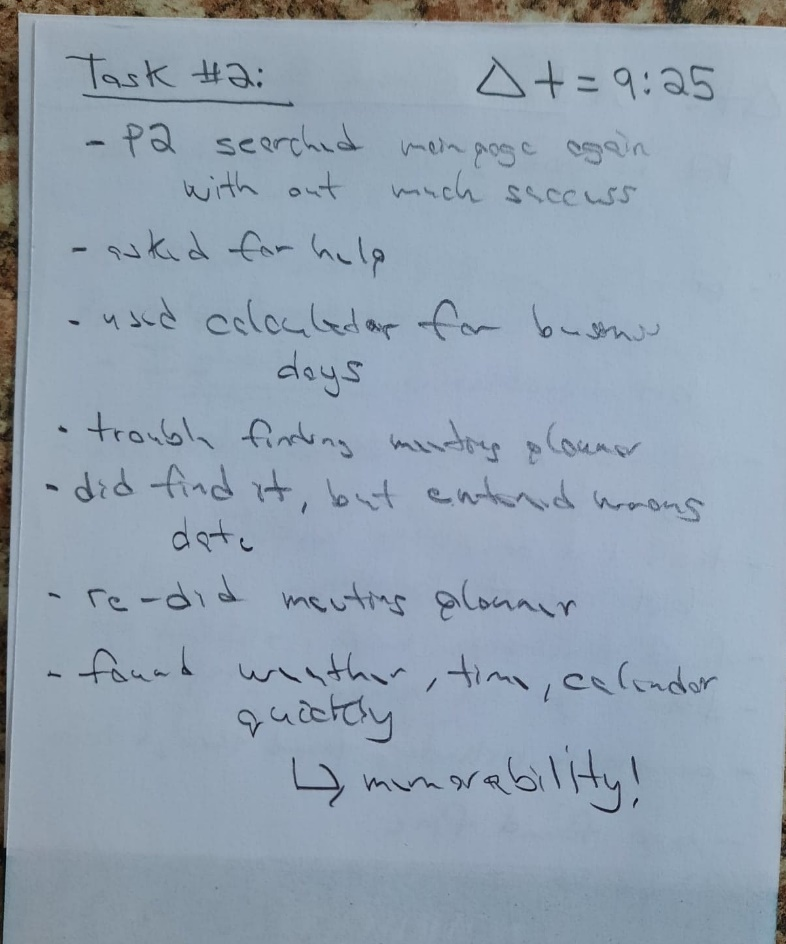 Task #2: Δt = 9:25
- P2 searched main page again
with out much success
- asked for help
- used calculator for business
days
- trouble finding meeting planner
- did find it, but entered wrong
date
- re-did meeting planner
- found weather, time, calendar
quickly
↳ memorability!